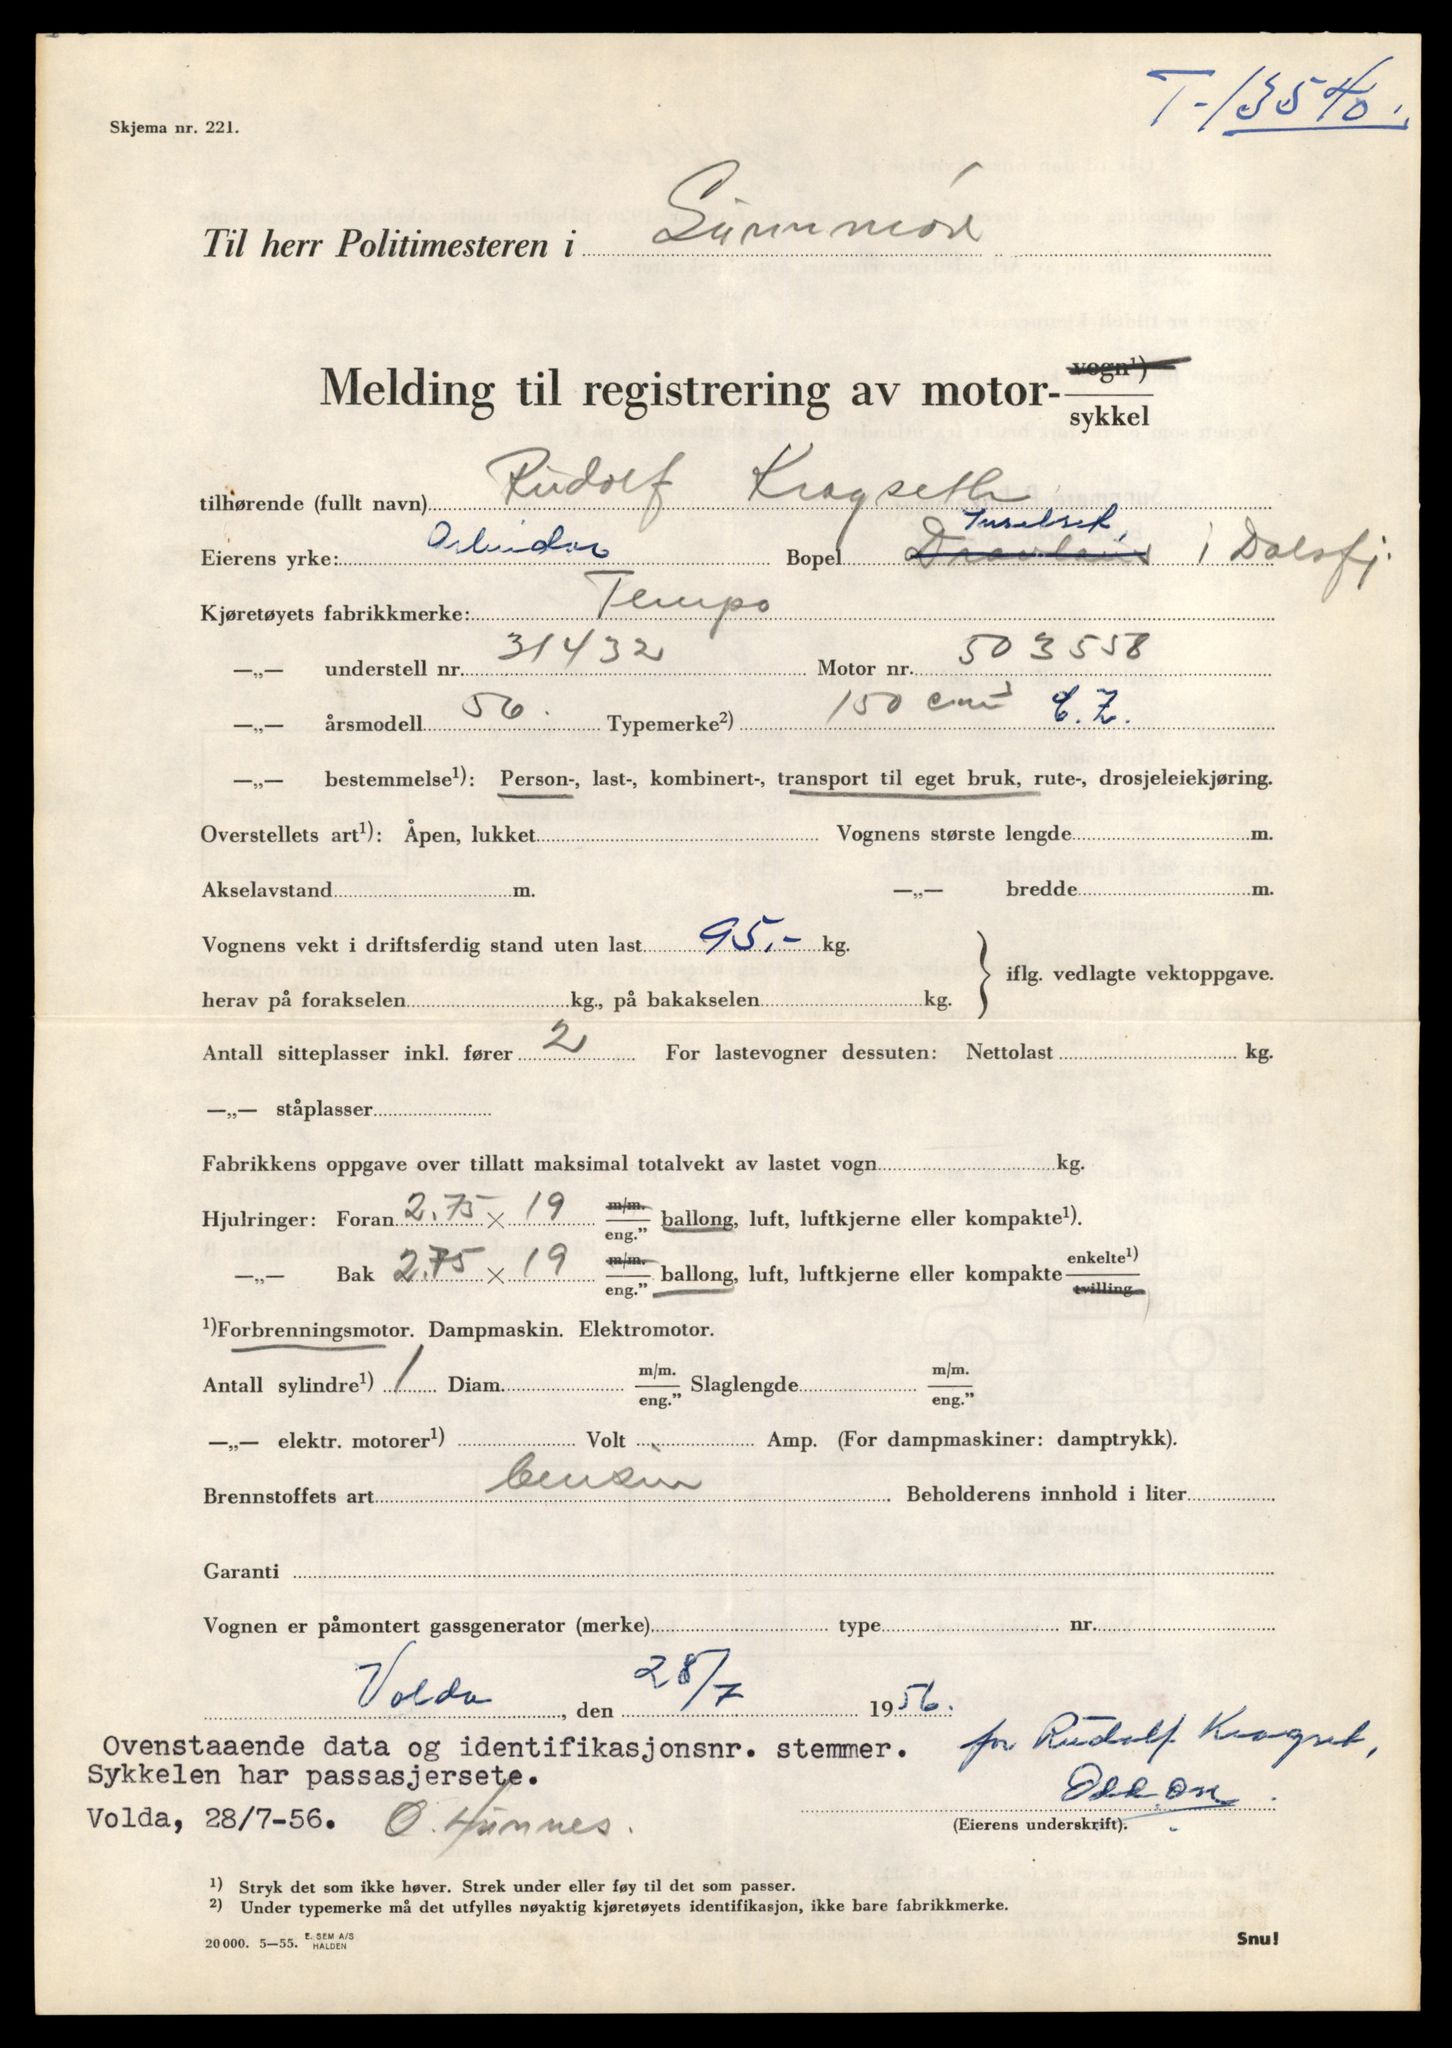 T-13540.
Skjema nr. 221.
Til herr Politimesteren i Sunnmøre
Melding til registrering av motor- vogn¹) / sykkel
tilhørende (fullt navn) Rudolf Kragseth
Eierens yrke: Arbeidar Bopel i Dalsfj.
Kjøretøyets fabrikkmerke: Tempo
—„— understell nr. 31432 Motor nr. 503558
—„— årsmodell 56. Typemerke²) 150 cm³ C.Z.
—„— bestemmelse¹): Person-, last-, kombinert-, transport til eget bruk, rute-, drosjeleiekjøring.
Overstellets art¹): Åpen, lukket Vognens største lengde m.
Akselavstand m. —„— bredde m.
Vognens vekt i driftsferdig stand uten last 95.- kg.
herav på forakselen kg., på bakakselen kg. } iflg. vedlagte vektoppgave.
Antall sitteplasser inkl. fører 2 For lastevogner dessuten: Nettolast kg.
—„— ståplasser
Fabrikkens oppgave over tillatt maksimal totalvekt av lastet vogn kg.
Hjulringer: Foran 2.75 × 19 m/m. / eng.” ballong, luft, luftkjerne eller kompakte¹).
—„— Bak 2.75 × 19 m/m. / eng.” ballong, luft, luftkjerne eller kompakte enkelte¹) / tvilling
¹)Forbrenningsmotor. Dampmaskin. Elektromotor.
Antall sylindre¹) 1 Diam. m/m. / eng.” Slaglengde m/m. / eng.”
—„— elektr. motorer¹) Volt Amp. (For dampmaskiner: damptrykk).
Brennstoffets art bensin Beholderens innhold i liter
Garanti
Vognen er påmontert gassgenerator (merke) type nr.
Volda, den 28/7 1956.
Ovenstaaende data og identifikasjonsnr. stemmer.
for Rudolf Kragset,
Sykkelen har passasjersete.
Volda, 28/7-56. O. Hunnes.
(Eierens underskrift).
¹) Stryk det som ikke høver. Strek under eller føy til det som passer.
²) Under typemerke må det utfylles nøyaktig kjøretøyets identifikasjon, ikke bare fabrikkmerke.
20 000. 5—55. E. SEM A/S HALDEN
Snu!